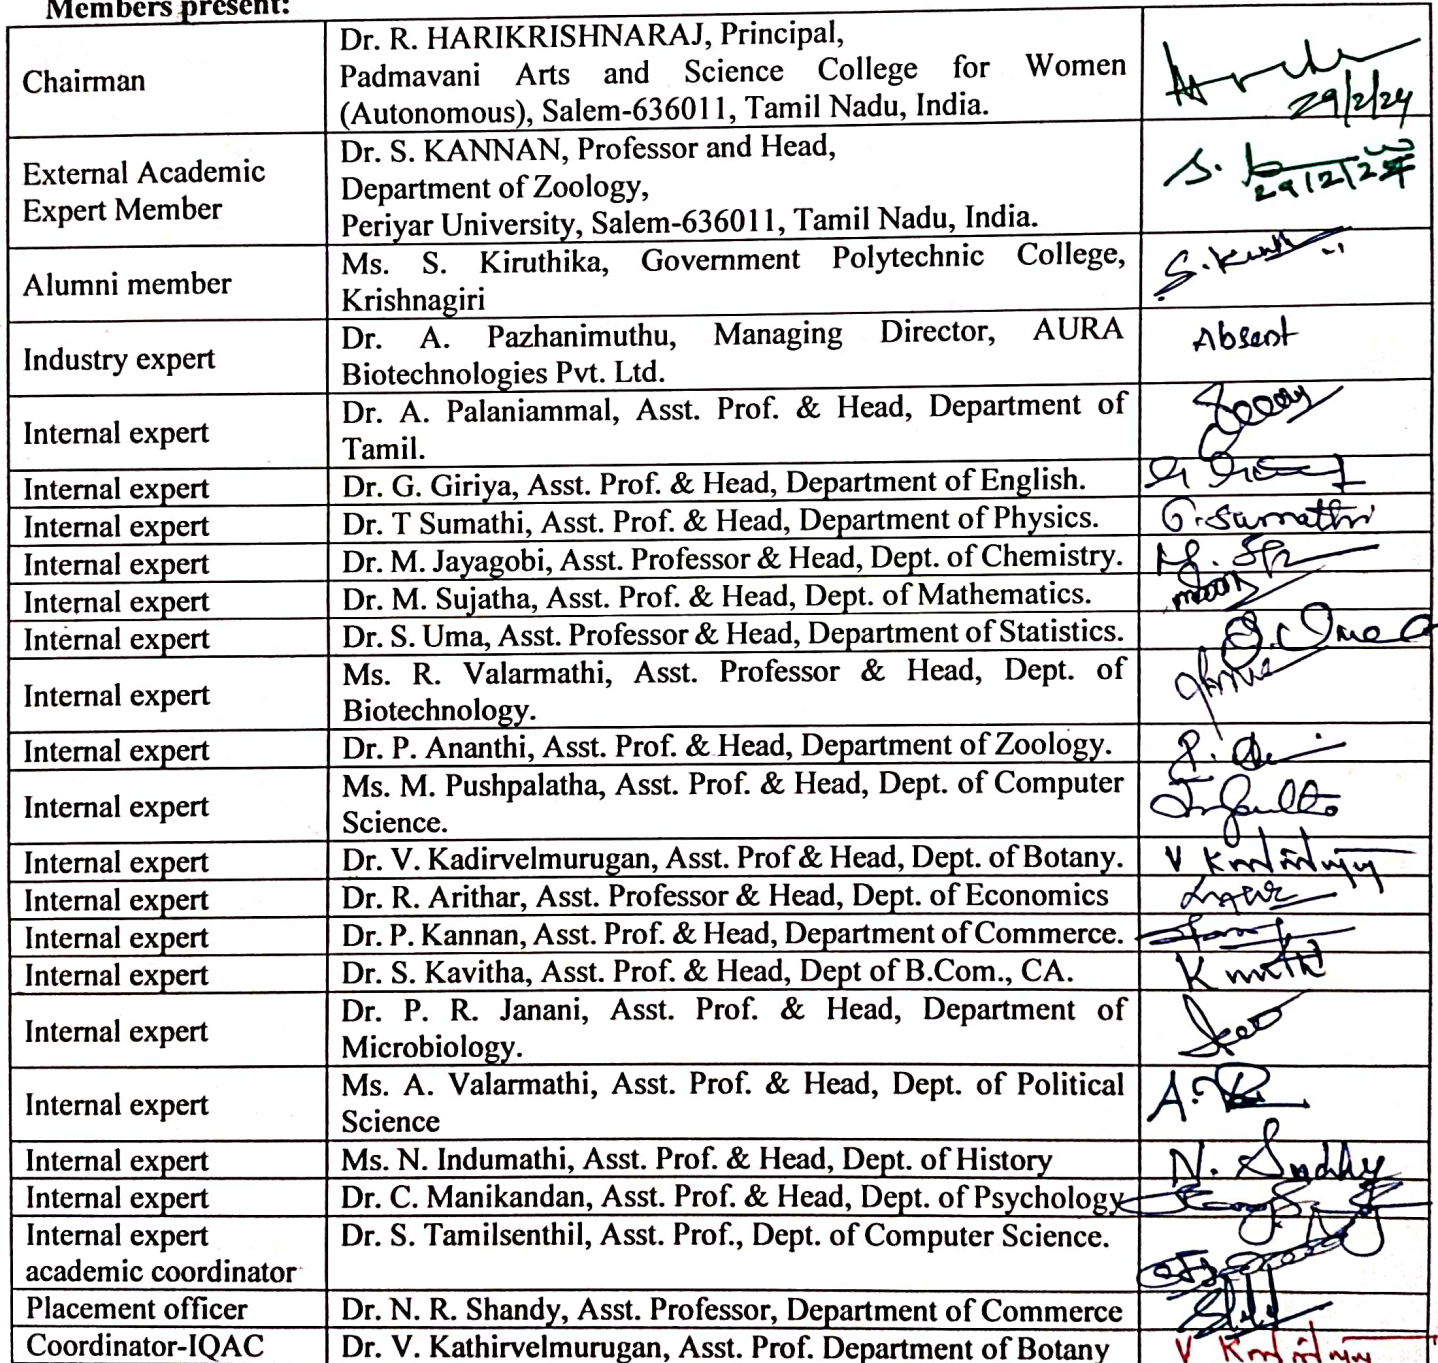 Members present:
Chairman
Dr. R. HARIKRISHNARAJ, Principal,
Padmavani Arts and Science College for Women
(Autonomous), Salem-636011, Tamil Nadu, India.
29/2/24
External Academic
Expert Member
Dr. S. KANNAN, Professor and Head,
Department of Zoology,
Periyar University, Salem-636011, Tamil Nadu, India.
S.
29/2/24
Alumni member
Ms. S. Kiruthika, Government Polytechnic College,
Krishnagiri
Industry expert
Dr. A. Pazhanimuthu, Managing Director, AURA
Biotechnologies Pvt. Ltd.
Absent
Internal expert
Dr. A. Palaniammal, Asst. Prof. & Head, Department of
Tamil.
Internal expert
Dr. G. Giriya, Asst. Prof. & Head, Department of English.
Internal expert
Dr. T Sumathi, Asst. Prof. & Head, Department of Physics.
Internal expert
Dr. M. Jayagobi, Asst. Professor & Head, Dept. of Chemistry.
Internal expert
Dr. M. Sujatha, Asst. Prof. & Head, Dept. of Mathematics.
Internal expert
Dr. S. Uma, Asst. Professor & Head, Department of Statistics.
Internal expert
Ms. R. Valarmathi, Asst. Professor & Head, Dept. of
Biotechnology.
Internal expert
Dr. P. Ananthi, Asst. Prof. & Head, Department of Zoology.
Internal expert
Ms. M. Pushpalatha, Asst. Prof. & Head, Dept. of Computer
Science.
Internal expert
Dr. V. Kadirvelmurugan, Asst. Prof & Head, Dept. of Botany.
Internal expert
Dr. R. Arithar, Asst. Professor & Head, Dept. of Economics
Internal expert
Dr. P. Kannan, Asst. Prof. & Head, Department of Commerce.
Internal expert
Dr. S. Kavitha, Asst. Prof. & Head, Dept of B.Com., CA.
Internal expert
Dr. P. R. Janani, Asst. Prof. & Head, Department of
Microbiology.
Internal expert
Ms. A. Valarmathi, Asst. Prof. & Head, Dept. of Political
Science
Internal expert
Ms. N. Indumathi, Asst. Prof. & Head, Dept. of History
Internal expert
Dr. C. Manikandan, Asst. Prof. & Head, Dept. of Psychology
Internal expert
academic coordinator
Dr. S. Tamilsenthil, Asst. Prof., Dept. of Computer Science.
Placement officer
Dr. N. R. Shandy, Asst. Professor, Department of Commerce
Coordinator-IQAC
Dr. V. Kathirvelmurugan, Asst. Prof. Department of Botany